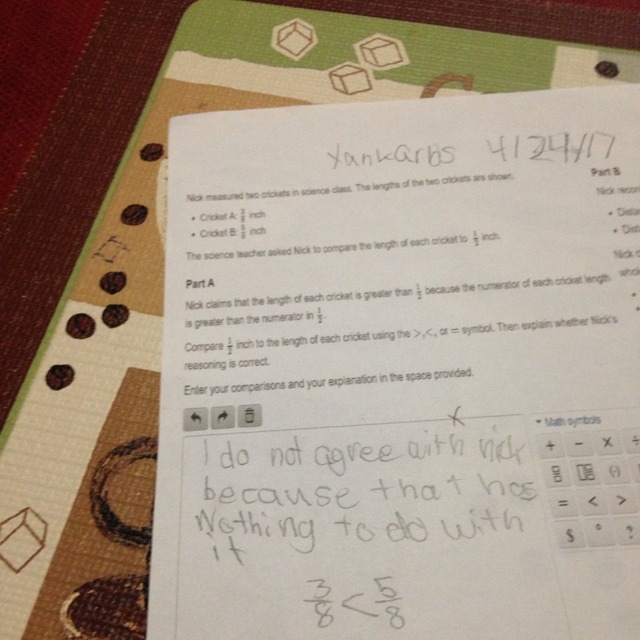 Yankarbs 4/24/17
Nick measured two crickets in science class. The lengths of the two crickets are shown.
• Cricket A: inch
• Cricket B: inch
The science teacher asked Nick to compare the length of each cricket to 1/2 inch.
Part A
Nick claims that the length of each cricket is greater than 1/2 because the numerator of each cricket length
is greater than the numerator in 1/2.
Compare 1/2 inch to the length of each cricket using the >, <, or = symbol. Then explain whether Nick's
reasoning is correct.
Enter your comparisons and your explanation in the space provided.
I do not agree with nick
because that has
Nothing to do with
it
3/8 < 5/8
Math symbols
+ − × ÷
= < >
$ ° ?
Part B
Nick
• Dista
• Dist
Nick